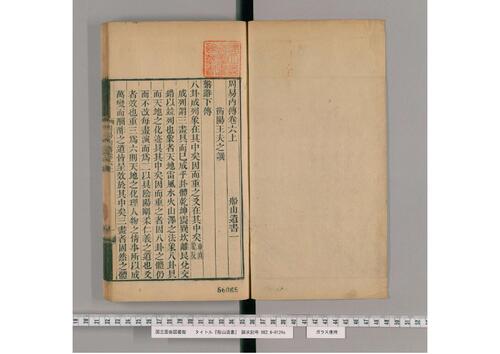 周易內傳卷六上　船山遺書一
衡陽王夫之譔
繫辭下傳
八卦成列象在其中矣因而重之爻在其中矣
成列謂三畫具而已成乎卦體乾坤震巽坎離艮兌交
錯以並列也象者天地雷風水火山澤之法象八卦具
而天地之化迹具其中矣因而重之者因八卦之體仍
而不改每畫演而爲二以具陰陽剛柔仁義之道也爻
者效也重三爲六則天地之化理人物之情事所以成
萬變而酬酢之道皆呈效於其中矣三畫者固然之體
国立国会図書館　タイトル『船山遺書』　請求記号
ガラス使用